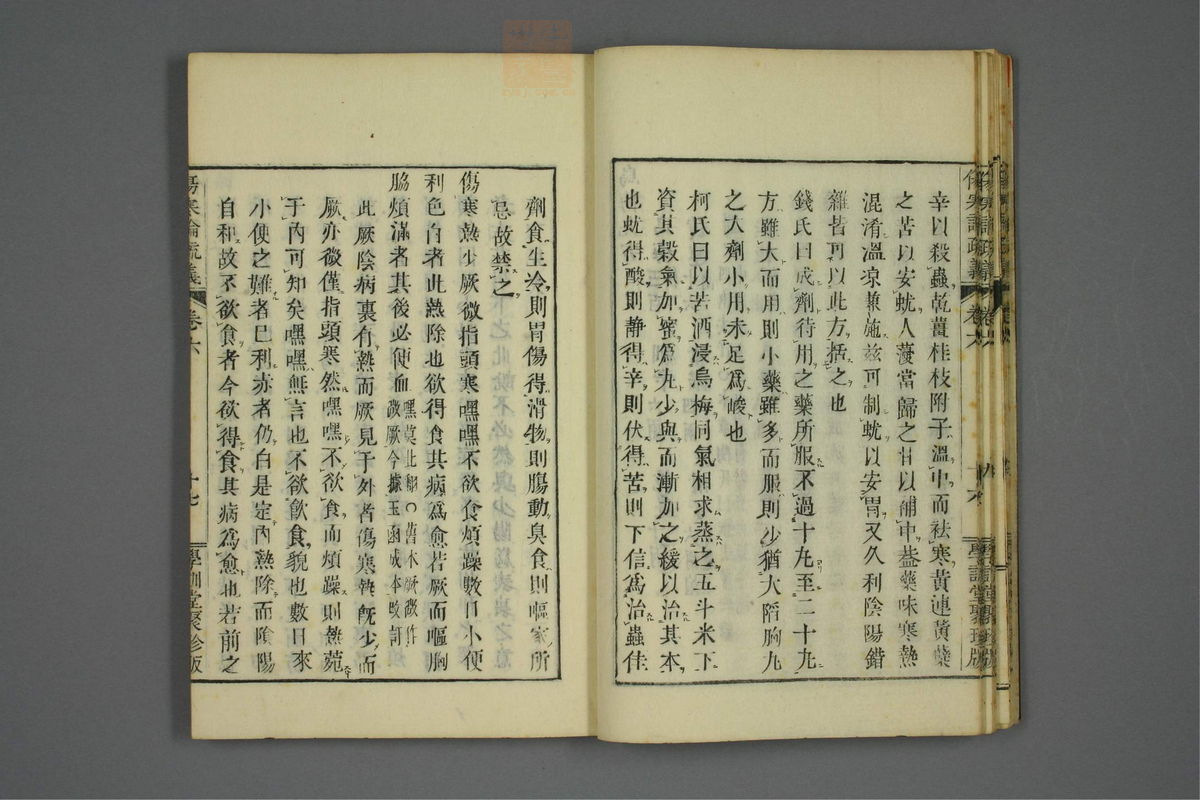 辛以殺蟲乾薑桂枝附子溫中而袪寒黃連黃蘗
之苦以安蚘人薓當歸之甘以補中益藥味寒熱
混淆溫凉兼施茲可制蚘以安胃又久利陰陽錯
雜皆可以此方括之也
錢氏曰成劑待用之藥所服不過十九至二十九
方雖大而用則小藥雖多而服則少猶大陷胸九
之大劑小用未足爲峻也
柯氏曰以苦酒浸烏梅同氣相求蒸之五斗米下
資其穀氣加蜜爲丸少與而漸加之緩以治其本
也蚘得酸則靜得辛則伏得苦則下信爲治蟲佳
齊食生冷則胃傷得滑物則腸動臭食則嘔家所
忌故禁之
傷寒熱少厥微指頭寒嘿嘿不欲食煩躁數日小便
利色白者此熱除也欲得食其病爲愈若厥而嘔胸
脇煩滿者其後必便血嘿莫北翻○舊本厥微作
微厥今據玉函成本改訂
此厥陰病裏有熱而厥見于外者傷寒熱旣少而
厥亦微僅指頭寒然嘿嘿不欲食而煩躁則熱菀
于內可知矣嘿嘿無言也不欲飮食貌也數日來
小便之難者已利赤者仍白是定內熱除而陰陽
自和故不欲食者今欲得食其病爲愈也若前之
傷寒論疏義
卷六
十七
學訓堂聚珍版